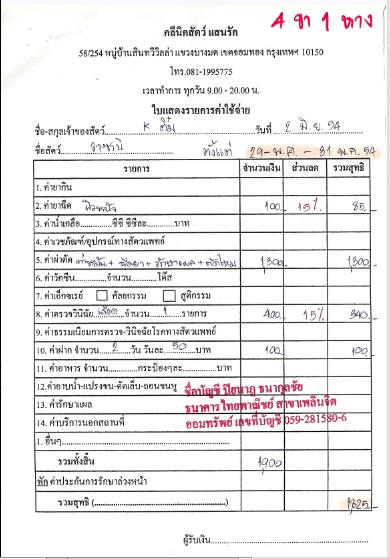 4 ขา 1 หาง
คลีนิคสัตว์ แสนรัก
58/254 หมู่บ้านสินทวีวิลล่า แขวงบางมด เขตจอมทอง กรุงเทพฯ 10150
โทร.081-1995775
เวลาทำการ ทุกวัน 9.00 - 20.00 น.
ใบแสดงรายการค่าใช้จ่าย
ชื่อ-สกุลเจ้าของสัตว์ K วันที่ 2 มิ.ย. 54
ชื่อสัตว์ ราชานี ตั้งแต่ 29-พ.ค. - 31 พ.ค. 54
รายการ จำนวนเงิน ส่วนลด รวมสุทธิ
1. ค่ายากิน
2. ค่ายาฉีด ผิวหนัง 100 15% 85
3. ค่าน้ำเกลือ ซีซี ซีซีละ บาท
4. ค่าเวชภัณฑ์/อุปกรณ์ทางสัตวแพทย์
5. ค่าผ่าตัด ทำหมัน + ฉีดยา + รักษาแผล + ตัดไหม 1,300 1,300
6. ค่าวัคซีน จำนวน โด๊ส
7. ค่าเอ็กซเรย์ ศัลยกรรม สูติกรรม
8. ค่าตรวจวินิจฉัย เลือด จำนวน 1 รายการ 400 15% 340
9. ค่าธรรมเนียมการตรวจ-วินิจฉัยโรคทางสัตวแพทย์
10. ค่าฝาก จำนวน 2 วัน วันละ 50 บาท 100 100
11. ค่าอาหาร จำนวน กระป๋องๆละ บาท
12. ค่าอาบน้ำ-แปรงขน-ตัดเล็บ-ถอนขนหู
ชื่อบัญชี ปิยนาฎ ธนากุลชัย
13. ค่ารักษาแผล
ธนาคารไทยพาณิชย์ สาขาเพลินจิต
14. ค่าบริการนอกสถานที่
ออมทรัพย์ เลขที่บัญชี 059-281580-6
1. อื่นๆ
รวมทั้งสิ้น 1,900
หัก ค่าประกันการรักษาล่วงหน้า
รวมสุทธิ ( ) 1,825
ผู้รับเงิน